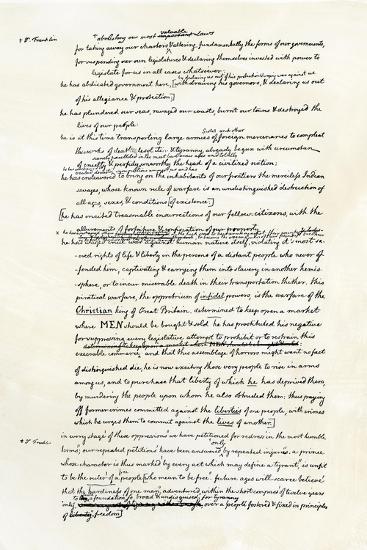 abolishing our most valuable important Laws
+ Dr. Franklin
for taking away our charters & altering fundamentally the forms of our governments,
for suspending our own legislatures & declaring themselves invested with power to
legislate for us in all cases whatsoever:
by declaring us out of his protection & waging war against us
he has abdicated government here, [withdrawing his governors, & declaring us out
of his allegiance & protection:]
he has plundered our seas, ravaged our coasts, burnt our towns & destroyed the
lives of our people:
Scotch and other
he is at this time transporting large armies of foreign mercenaries to compleat
the works of death, desolation & tyranny, already begun with circumstances
scarcely paralleled in the most barbarous ages and totally
of cruelty & perfidy unworthy the head of a civilized nation:
he has endeavored to bring on the inhabitants of our frontiers the merciless Indian
savages, whose known rule of warfare is an undistinguished destruction of
all ages, sexes, & conditions [of existence:]
[he has incited treasonable insurrections of our fellow-citizens, with the
allurements of forfeiture & confiscation of our property:
he has waged cruel war against human nature itself, violating it's most sa-
cred rights of life & liberty in the persons of a distant people who never of-
fended him, captivating & carrying them into slavery in another hemis-
phere, or to incur miserable death in their transportation thither. this
piratical warfare, the opprobrium of infidel powers, is the warfare of the
Christian king of Great Britain. determined to keep open a market
where MEN should be bought & sold he has prostituted his negative
for suppressing every legislative attempt to prohibit or to restrain this
execrable commerce: and that this assemblage of horrors might want no fact
of distinguished die, he is now exciting those very people to rise in arms
among us, and to purchase that liberty of which he has deprived them,
by murdering the people upon whom he also obtruded them: thus paying
off former crimes committed against the liberties of one people, with crimes
which he urges them to commit against the lives of another.]
in every stage of these oppressions we have petitioned for redress in the most humble
only
terms; our repeated petitions have been answered by repeated injuries. a prince
whose character is thus marked by every act which may define a tyrant, is unfit
to be the ruler of a people [who mean to be free. future ages will scarce believe
that the hardiness of one man, adventured within the short compass of twelve years
only, to
a foundation so broad & undisguised, for tyranny
over a people fostered & fixed in principles
of liberty freedom]